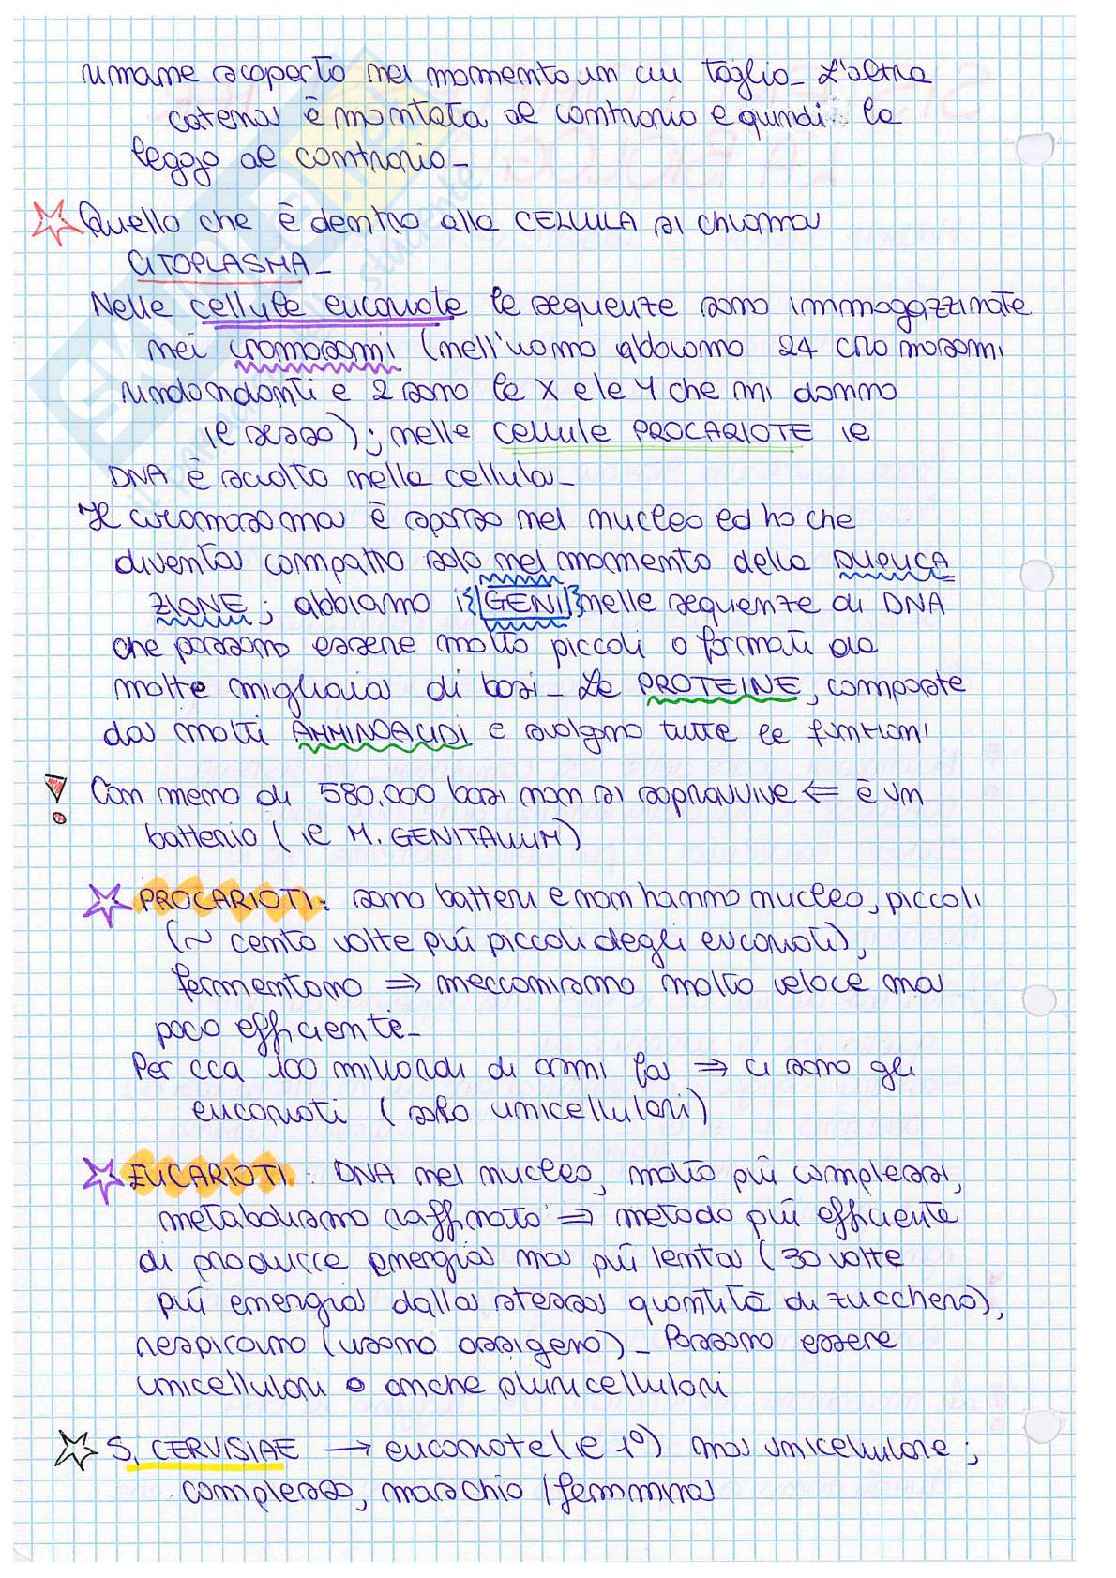 rimane scoperto nel momento in cui taglio_ L'altra
catena è montata al contrario e quindi la
leggo al contrario_
Quello che è dentro alla CELLULA si chiama
CITOPLASMA_
Nelle cellule eucariote le sequenze sono immagazzinate
nei cromosomi (nell'uomo abbiamo 24 cromosomi
ridondanti e 2 sono le X e le Y che mi danno
le sesso); nelle cellule PROCARIOTE le
DNA è sciolto nella cellula_
Il cromosoma è sparso nel nucleo ed ho che
diventa compatto solo nel momento della DUPLICA
ZIONE; abbiamo i GENI nelle sequenze di DNA
che possono essere molto piccoli o formati da
molte migliaia di basi_ Le PROTEINE, composte
da molti AMMINOACIDI e svolgono tutte le funzioni
! Con meno di 580.000 basi non si sopravvive ⇐ è un
batterio (le M. GENITALIUM)
PROCARIOTI: sono batteri e non hanno nucleo, piccoli
(~ cento volte più piccoli degli eucarioti),
fermentano ⇒ meccanismo molto veloce ma
poco efficiente_
Per cca 100 miliardi di anni fa ⇒ ci sono gli
eucarioti (solo unicellulari)
EUCARIOTI: DNA nel nucleo, molto più complessi,
metabolismo raffinato ⇒ metodo più efficiente
di produrre energia ma più lenta (30 volte
più energia dalla stessa quantità di zucchero),
respirano (usano ossigeno)_ Possono essere
unicellulari o anche pluricellulari
S. CERVISIAE → eucariote (le 1°) ma unicellulare;
complesso, maschio/femmina